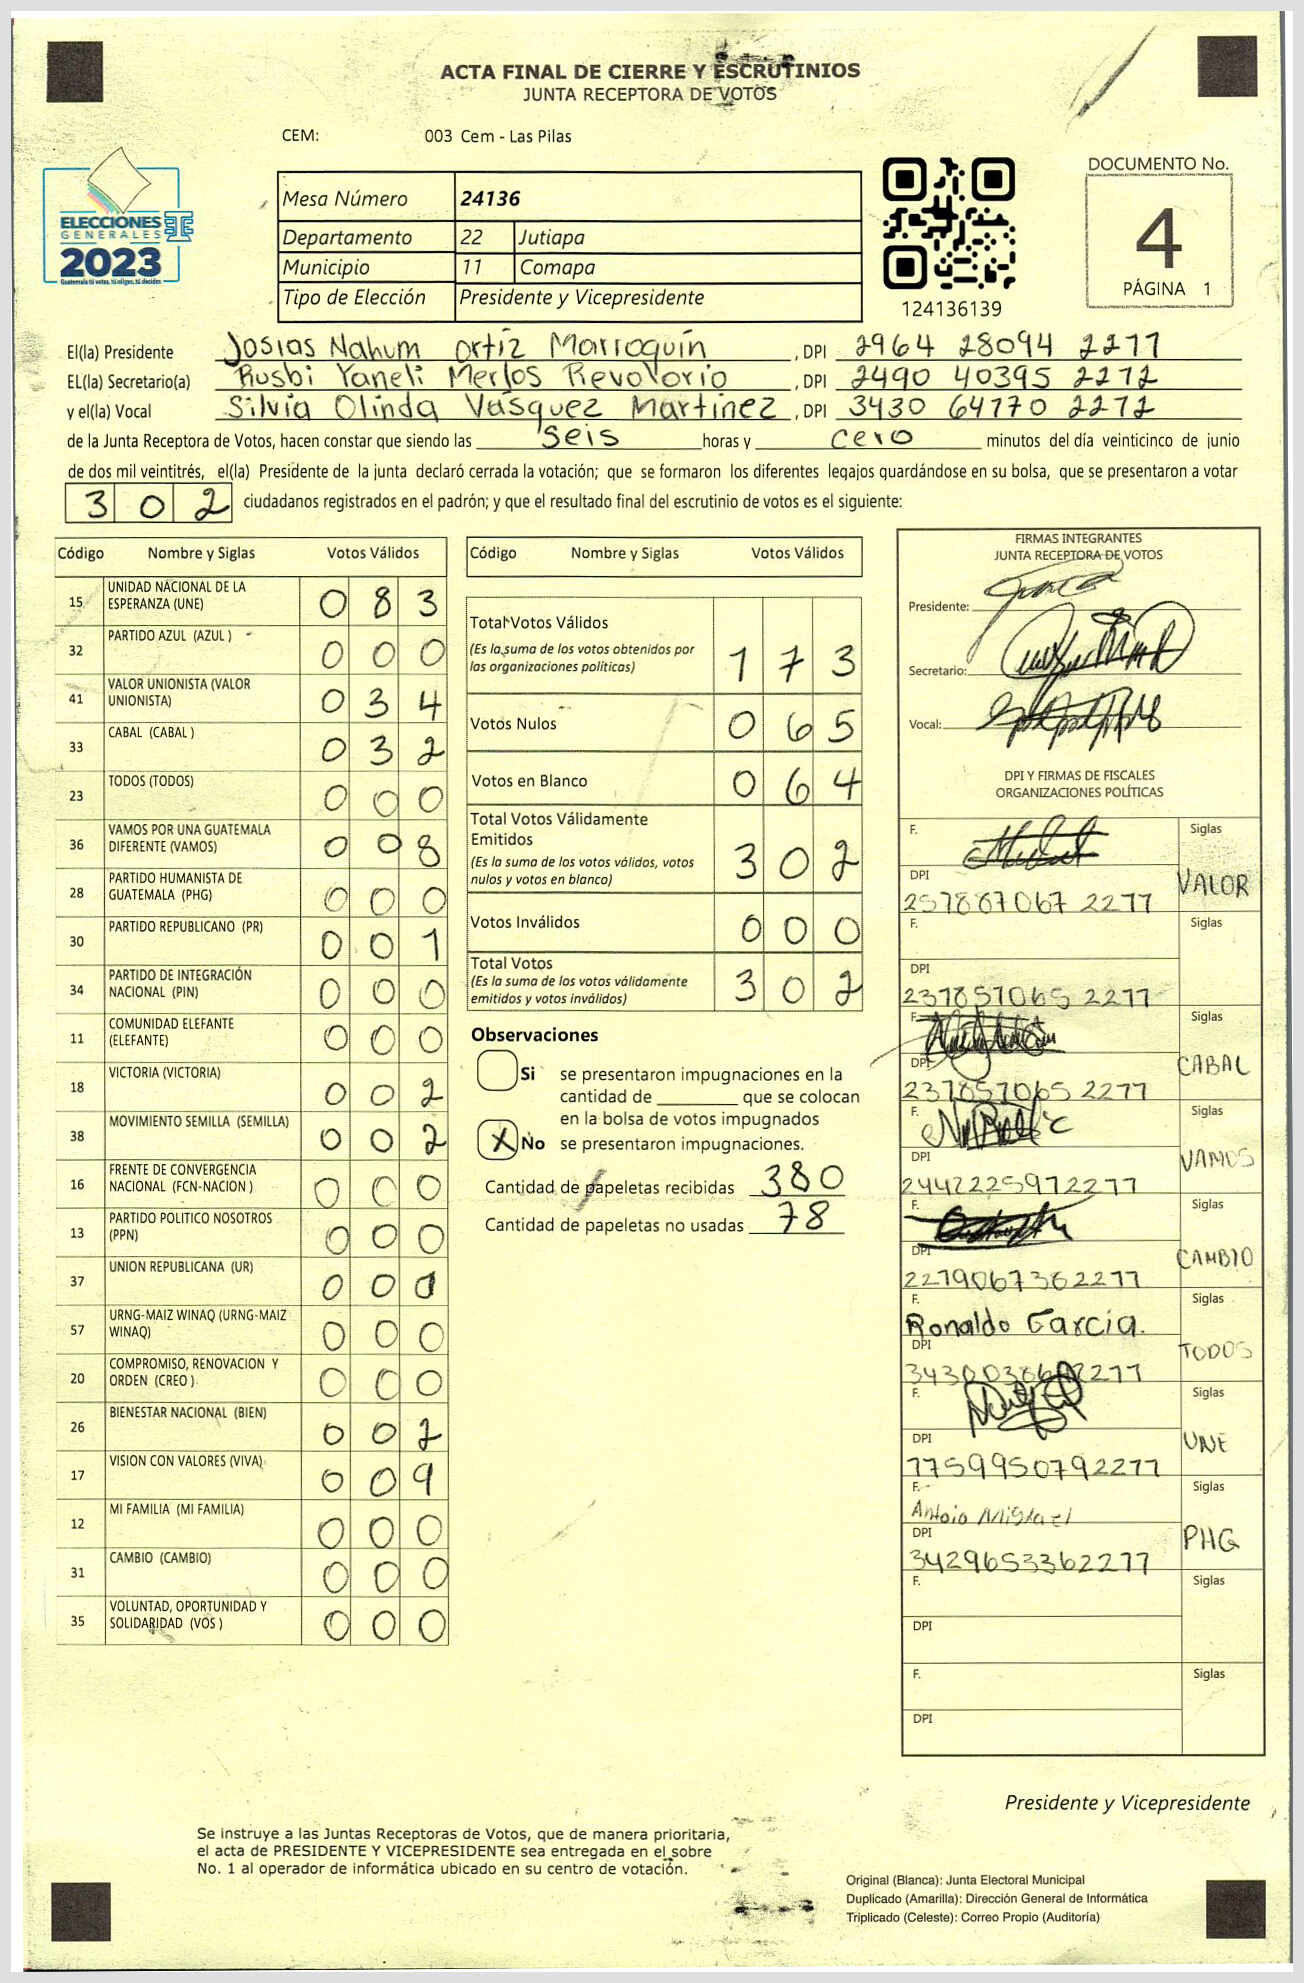 ACTA FINAL DE CIERRE Y ESCRUTINIOS
JUNTA RECEPTORA DE VOTOS
CEM: 003 Cem - Las Pilas
ELECCIONES
GENERALES
2023
Guatemala tú votas, tú eliges, tú decides
Mesa Número 24136
Departamento 22 Jutiapa
Municipio 11 Comapa
Tipo de Elección Presidente y Vicepresidente
124136139
DOCUMENTO No.
4
PÁGINA 1
El(la) Presidente Josias Nahum Ortiz Marroquin , DPI 2964 28094 2277
EL(la) Secretario(a) Rusbi Yaneli Merlos Revolorio , DPI 2490 40395 2272
y el(la) Vocal Silvia Olinda Vásquez Martinez , DPI 3430 64770 2272
de la Junta Receptora de Votos, hacen constar que siendo las seis horas y cero minutos del día veinticinco de junio
de dos mil veintitrés, el(la) Presidente de la junta declaró cerrada la votación; que se formaron los diferentes legajos guardándose en su bolsa, que se presentaron a votar
302 ciudadanos registrados en el padrón; y que el resultado final del escrutinio de votos es el siguiente:
Código Nombre y Siglas Votos Válidos
15 UNIDAD NACIONAL DE LA ESPERANZA (UNE) 0 8 3
32 PARTIDO AZUL (AZUL ) 0 0 0
41 VALOR UNIONISTA (VALOR UNIONISTA) 0 3 4
33 CABAL (CABAL ) 0 3 2
23 TODOS (TODOS) 0 0 0
36 VAMOS POR UNA GUATEMALA DIFERENTE (VAMOS) 0 0 8
28 PARTIDO HUMANISTA DE GUATEMALA (PHG) 0 0 0
30 PARTIDO REPUBLICANO (PR) 0 0 1
34 PARTIDO DE INTEGRACIÓN NACIONAL (PIN) 0 0 0
11 COMUNIDAD ELEFANTE (ELEFANTE) 0 0 0
18 VICTORIA (VICTORIA) 0 0 2
38 MOVIMIENTO SEMILLA (SEMILLA) 0 0 2
16 FRENTE DE CONVERGENCIA NACIONAL (FCN-NACION ) 0 0 0
13 PARTIDO POLITICO NOSOTROS (PPN) 0 0 0
37 UNION REPUBLICANA (UR) 0 0
57 URNG-MAIZ WINAQ (URNG-MAIZ WINAQ) 0 0 0
20 COMPROMISO, RENOVACION Y ORDEN (CREO ) 0 0 0
26 BIENESTAR NACIONAL (BIEN) 0 0 2
17 VISION CON VALORES (VIVA) 0 0 9
12 MI FAMILIA (MI FAMILIA) 0 0 0
31 CAMBIO (CAMBIO) 0 0 0
35 VOLUNTAD, OPORTUNIDAD Y SOLIDARIDAD (VOS ) 0 0 0
Código Nombre y Siglas Votos Válidos
Total Votos Válidos
(Es la suma de los votos obtenidos por
las organizaciones políticas) 1 7 3
Votos Nulos 0 6 5
Votos en Blanco 0 6 4
Total Votos Válidamente
Emitidos
(Es la suma de los votos válidos, votos
nulos y votos en blanco) 3 0 2
Votos Inválidos 0 0 0
Total Votos
(Es la suma de los votos válidamente
emitidos y votos inválidos) 3 0 2
Observaciones
Si se presentaron impugnaciones en la
cantidad de ________ que se colocan
en la bolsa de votos impugnados
X No se presentaron impugnaciones.
Cantidad de papeletas recibidas 380
Cantidad de papeletas no usadas 78
FIRMAS INTEGRANTES
JUNTA RECEPTORA DE VOTOS
Presidente:
Secretario:
Vocal:
DPI Y FIRMAS DE FISCALES
ORGANIZACIONES POLÍTICAS
F. Siglas
DPI VALOR
257887067 2277
F. Siglas
DPI
237857065 2277
F. Siglas
DPI CABAL
237857065 2277
F. Siglas
DPI VAMOS
2442225972277
F. Siglas
DPI CAMBIO
2279067362277
F. Siglas
Ronaldo Garcia.
DPI TODOS
F. Siglas
DPI UNE
7759950792277
F. Siglas
DPI PHG
3429653362277
F. Siglas
DPI
F. Siglas
DPI
Presidente y Vicepresidente
Se instruye a las Juntas Receptoras de Votos, que de manera prioritaria,
el acta de PRESIDENTE Y VICEPRESIDENTE sea entregada en el sobre
No. 1 al operador de informática ubicado en su centro de votación.
Original (Blanca): Junta Electoral Municipal
Duplicado (Amarilla): Dirección General de Informática
Triplicado (Celeste): Correo Propio (Auditoría)